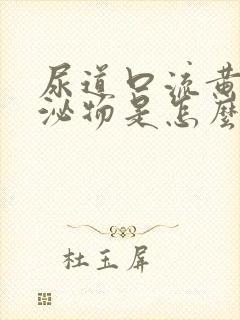 尿道口流黄
泌物是怎麼
杜玉屏